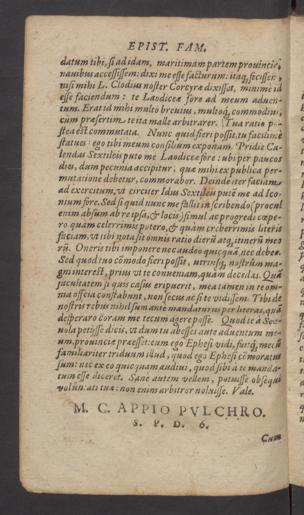 EPIST. FAM.
datum tibi, si ad idam, maritimam partem prouincie,
nauibus accessissem: dixi me esse facturum: itaq; fecissem,
nisi mihi L. Clodius noster Corcyræ dixisset, minime id
esse faciendum: te Laodiceæ fore ad meum aduen-
tum. Erat id mihi multo breuius, multoq; commodius,
cum præsertim te ita malle arbitrarer. Tua ratio po-
stea est commutata. Nunc quid fieri possit, tu facilime
statues: ego tibi meum consilium exponam. Pridie Ca-
lendas Sextileis puto me Laodiceæ fore: ubi per paucos
dies, dum pecunia accipitur, quæ mihi ex publica per-
mutatione debetur, commorabor. Deinde iter faciam
ad exercitum, ut circiter Idus Sextileis putẽ me ad Ico-
nium fore. Sed si quid nunc me fallit in scribendo (procul
enim absum ab re ipsa, & locis) simul ac progredi cœpe-
ro quam celerrimis potero, & quam creberrimis literis
faciam, ut tibi nota sit omnis ratio dierũ atq; itinerũ meo
rũ. Oneris tibi imponere nec audeo quicquã, nec debeo.
Sed quod tuo cõmodo fieri possit, utriusq; nostrũm ma-
gni interest, prius ut te conueniam, quàm decedas. Quã
facultatem si quis casus eripuerit, mea tamen in te om-
nia officia constabunt, non secus ac si te uidissem. Tibi de
nostris rebus nihil sum ante mandaturus per literas, quàm
desperaro coram me tecum agere posse. Quod te à Scæ-
uola petisse dicis, ut dum tu abesses ante aduentum me-
um, prouinciæ præesset: eum ego Ephesi uidi, fuitq; mecũ
familiariter triduum illud, quod ego Ephesi cõmoratus
sum: nec ex eo quicquam audiui, quod sibi à te manda-
tum esse diceret. Sane autem vellem, potuisse obsequi
voluntati tuæ: non enim arbitror noluisse. Vale.
M. C. APPIO PVLCHRO.
S. P. D. 6.
Cum